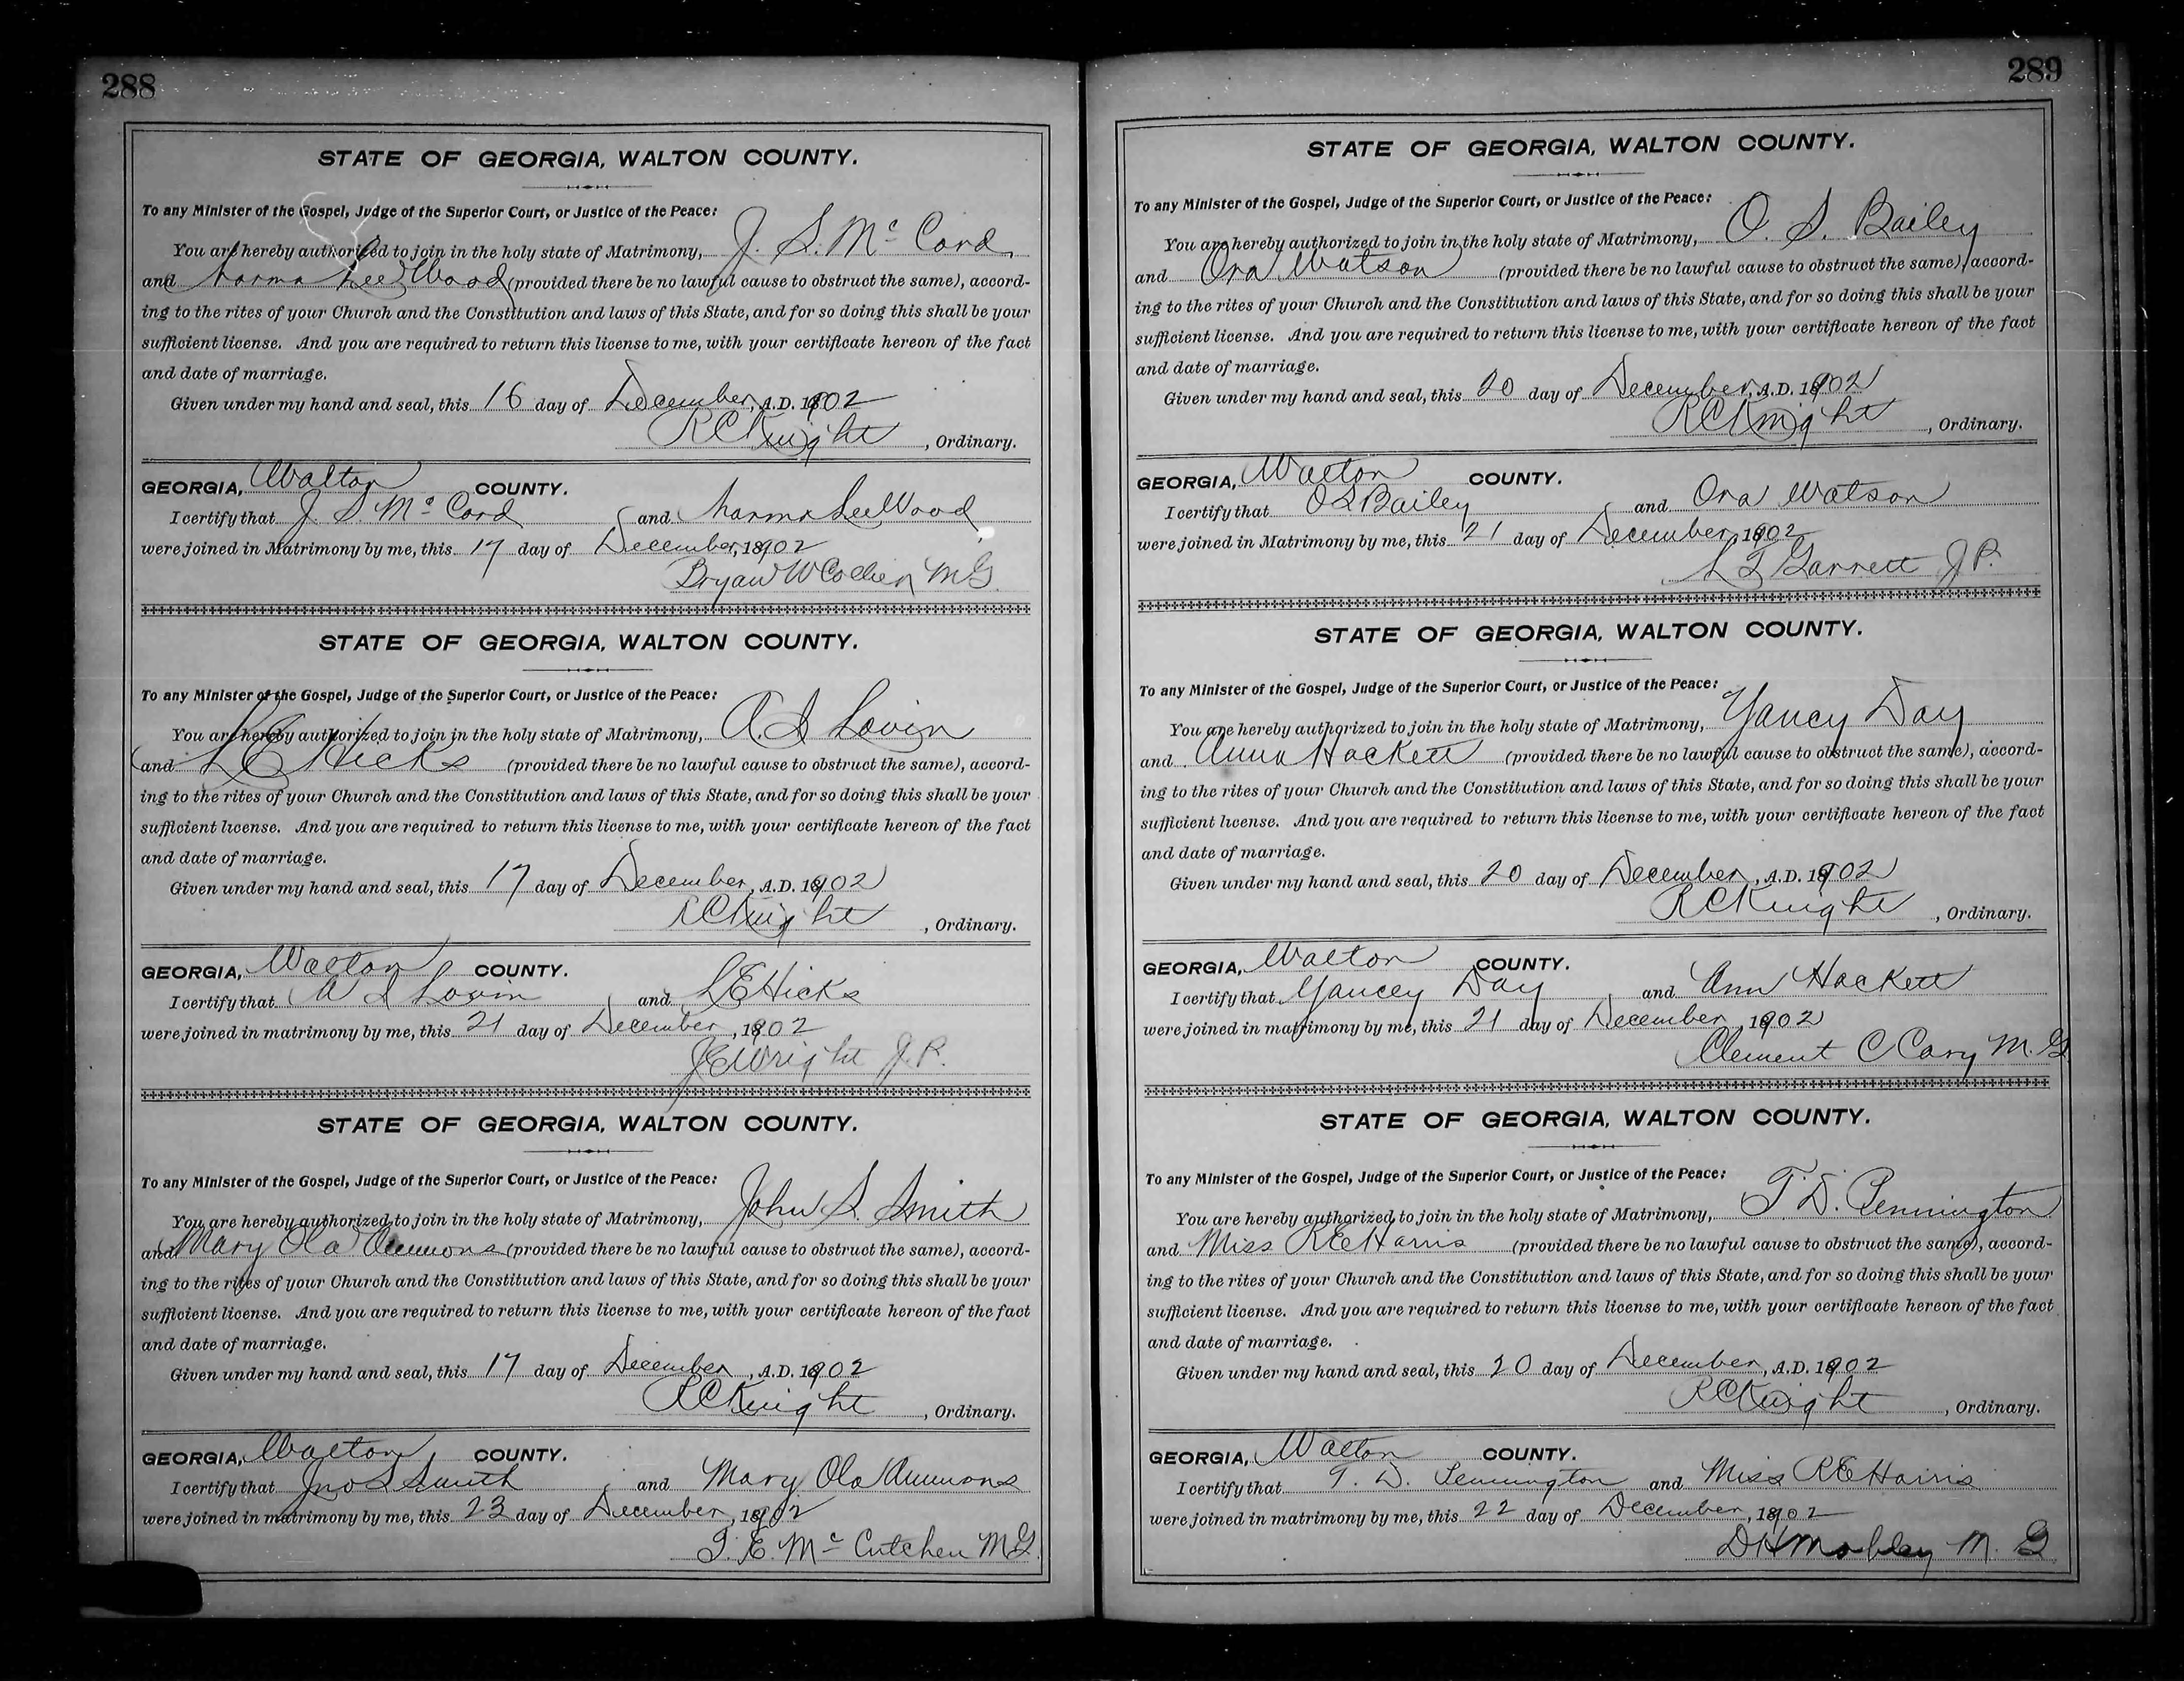 288
STATE OF GEORGIA, WALTON COUNTY.
To any Minister of the Gospel, Judge of the Superior Court, or Justice of the Peace:
You are hereby authorized to join in the holy state of Matrimony, J. S. Mc Cord
and Norma Lee Wood (provided there be no lawful cause to obstruct the same), accord-
ing to the rites of your Church and the Constitution and laws of this State, and for so doing this shall be your
sufficient license. And you are required to return this license to me, with your certificate hereon of the fact
and date of marriage.
Given under my hand and seal, this 16 day of December, A.D. 1902
RC Knight, Ordinary.
GEORGIA, Walton COUNTY.
I certify that J. S. Mc Cord and Norma Lee Wood
were joined in Matrimony by me, this 17 day of December, 1902
Bryan W Collier MG
STATE OF GEORGIA, WALTON COUNTY.
To any Minister of the Gospel, Judge of the Superior Court, or Justice of the Peace:
You are hereby authorized to join in the holy state of Matrimony, A. S Lovin
and L E Hicks (provided there be no lawful cause to obstruct the same), accord-
ing to the rites of your Church and the Constitution and laws of this State, and for so doing this shall be your
sufficient license. And you are required to return this license to me, with your certificate hereon of the fact
and date of marriage.
Given under my hand and seal, this 17 day of December, A.D. 1902
RC Knight, Ordinary.
GEORGIA, Walton COUNTY.
I certify that S Lovin and L E Hicks
were joined in matrimony by me, this 21 day of December, 1902
J E Wright J.P.
STATE OF GEORGIA, WALTON COUNTY.
To any Minister of the Gospel, Judge of the Superior Court, or Justice of the Peace:
You are hereby authorized to join in the holy state of Matrimony, John S. Smith
and Mary Ola Ammons (provided there be no lawful cause to obstruct the same), accord-
ing to the rites of your Church and the Constitution and laws of this State, and for so doing this shall be your
sufficient license. And you are required to return this license to me, with your certificate hereon of the fact
and date of marriage.
Given under my hand and seal, this 17 day of December, A.D. 1902
RC Knight, Ordinary.
GEORGIA, Walton COUNTY.
I certify that Jno S Smith and Mary Ola Ammons
were joined in matrimony by me, this 23 day of December, 1902
J. E. Mc Cutchen MG.
289
STATE OF GEORGIA, WALTON COUNTY.
To any Minister of the Gospel, Judge of the Superior Court, or Justice of the Peace:
You are hereby authorized to join in the holy state of Matrimony, O. S. Bailey
and Ora Watson (provided there be no lawful cause to obstruct the same), accord-
ing to the rites of your Church and the Constitution and laws of this State, and for so doing this shall be your
sufficient license. And you are required to return this license to me, with your certificate hereon of the fact
and date of marriage.
Given under my hand and seal, this 20 day of December, A.D. 1902
RC Knight, Ordinary.
GEORGIA, Walton COUNTY.
I certify that O S Bailey and Ora Watson
were joined in Matrimony by me, this 21 day of December 1902
Garrett J P.
STATE OF GEORGIA, WALTON COUNTY.
To any Minister of the Gospel, Judge of the Superior Court, or Justice of the Peace:
You are hereby authorized to join in the holy state of Matrimony, Yancy Day
and Anna Hackett (provided there be no lawful cause to obstruct the same), accord-
ing to the rites of your Church and the Constitution and laws of this State, and for so doing this shall be your
sufficient license. And you are required to return this license to me, with your certificate hereon of the fact
and date of marriage.
Given under my hand and seal, this 20 day of December, A.D. 1902
RC Knight, Ordinary.
GEORGIA, Walton COUNTY.
I certify that Yancey Day and Ann Hackett
were joined in matrimony by me, this 21 day of December, 1902
Clement C Cary M. G
STATE OF GEORGIA, WALTON COUNTY.
To any Minister of the Gospel, Judge of the Superior Court, or Justice of the Peace:
You are hereby authorized to join in the holy state of Matrimony, T. D. Pennington
and Miss R E Harris (provided there be no lawful cause to obstruct the same), accord-
ing to the rites of your Church and the Constitution and laws of this State, and for so doing this shall be your
sufficient license. And you are required to return this license to me, with your certificate hereon of the fact
and date of marriage.
Given under my hand and seal, this 20 day of December, A.D. 1902
RC Knight, Ordinary.
GEORGIA, Walton COUNTY.
I certify that T. D. Pennington and Miss R E Harris
were joined in matrimony by me, this 22 day of December, 1902
D H Mobley M. G